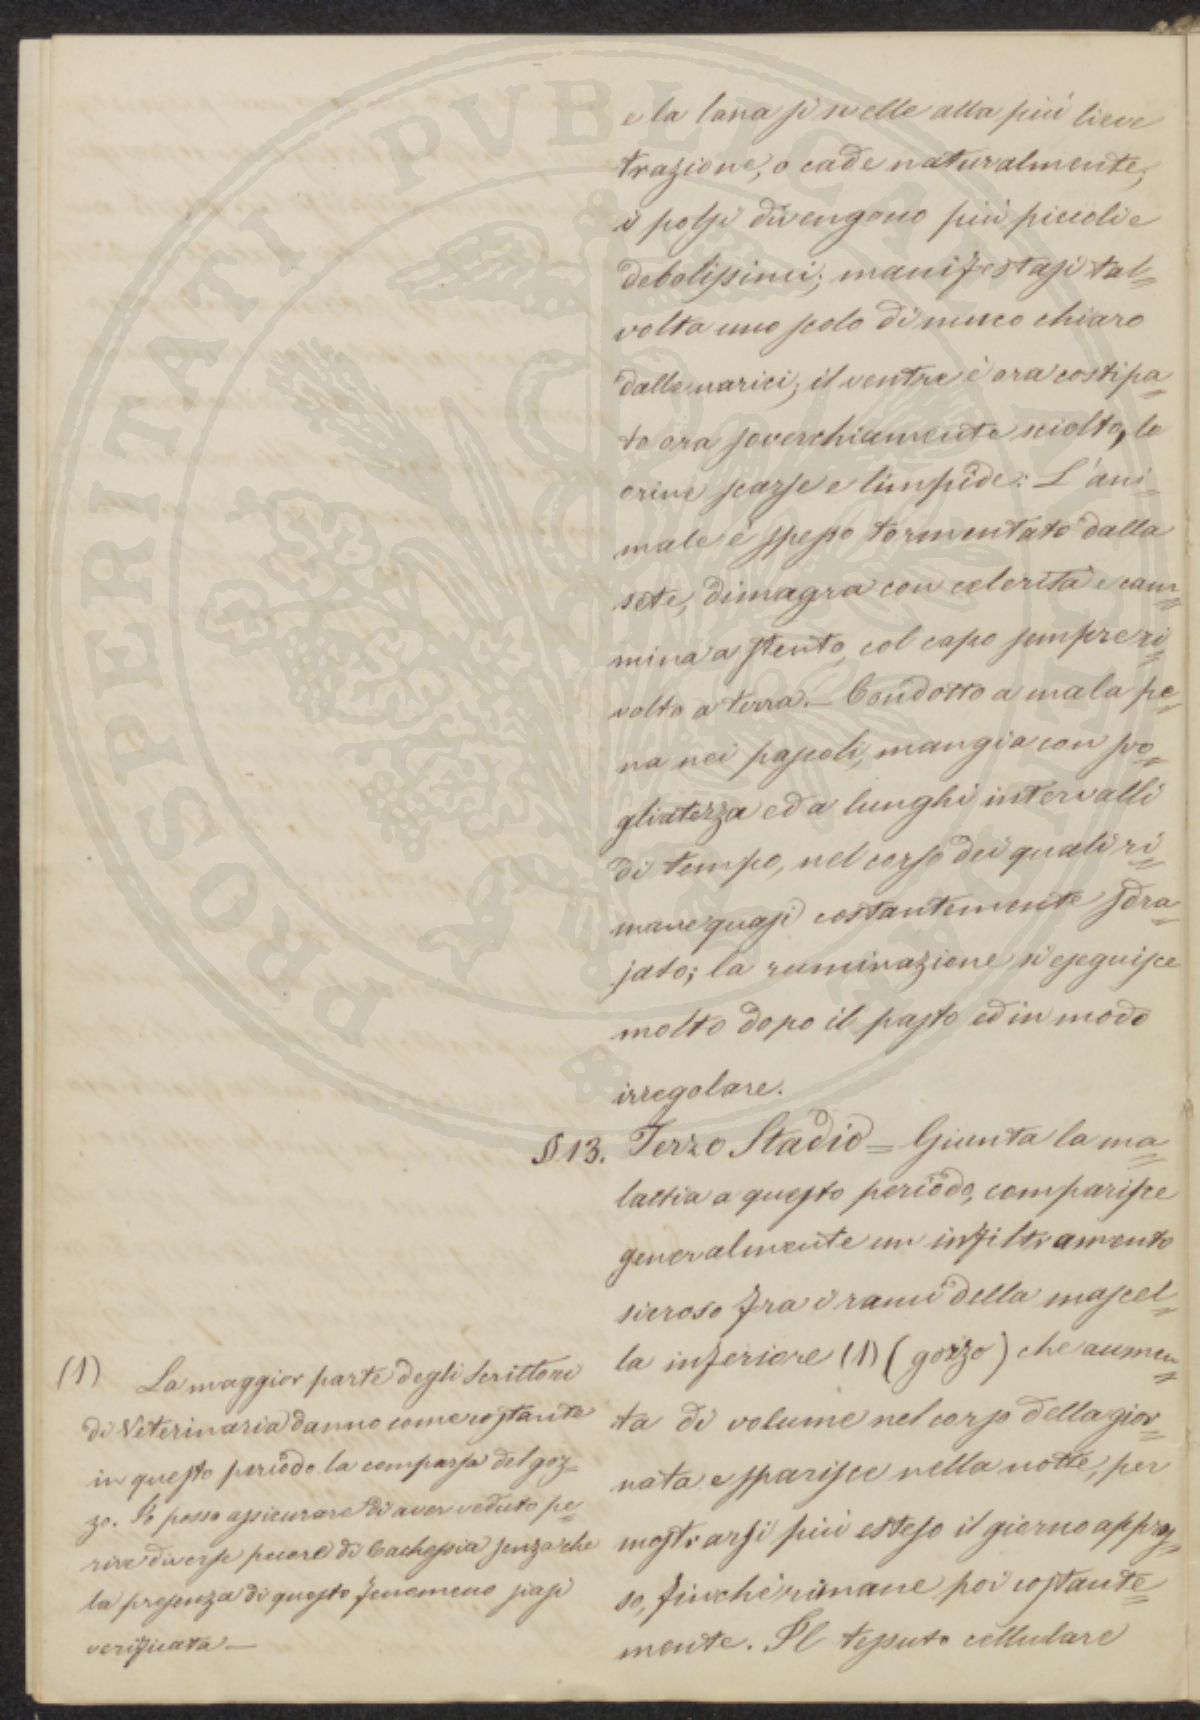 e la lana si svelle alla più lieve
trazione, o cade naturalmente;
i polsi divengono più piccoli e
debolissimi; manifestasi tal=
volta uno scolo di muco chiaro
dalle narici; il ventre è ora costipa=
to ora soverchiamente sciolto, le
orine scarse e limpide: L'ani=
male è spesso tormentato dalla
sete, dimagra con celerità e cam=
mina a stento, col capo sempre ri=
volto a terra. — Condotto a mala pe=
na nei pascoli, mangia con svo=
gliatezza ed a lunghi intervalli
di tempo, nel corso dei quali ri=
mane quasi costantemente sdra=
jato; la ruminazione si eseguisce
molto dopo il pasto ed in modo
irregolare.
§ 13. Terzo Stadio = Giunta la ma=
lattia a questo periodo, comparisce
generalmente un infiltramento
sieroso fra i rami della mascel=
la inferiore (1) (gozzo) che aumen=
ta di volume nel corso della gior=
nata e sparisce nella notte, per
mostrarsi più esteso il giorno appres=
so, finchè rimane poi costante=
mente. Il tessuto cellulare
(1) La maggior parte degli Scrittori
di Veterinaria danno come costante
in questo periodo la comparsa del goz=
zo. Io posso assicurare di aver veduto pe=
rire diverse pecore di Cachessia senza che
la presenza di questo fenomeno siasi
verificata —
PROSPERITATI PVBLICAE